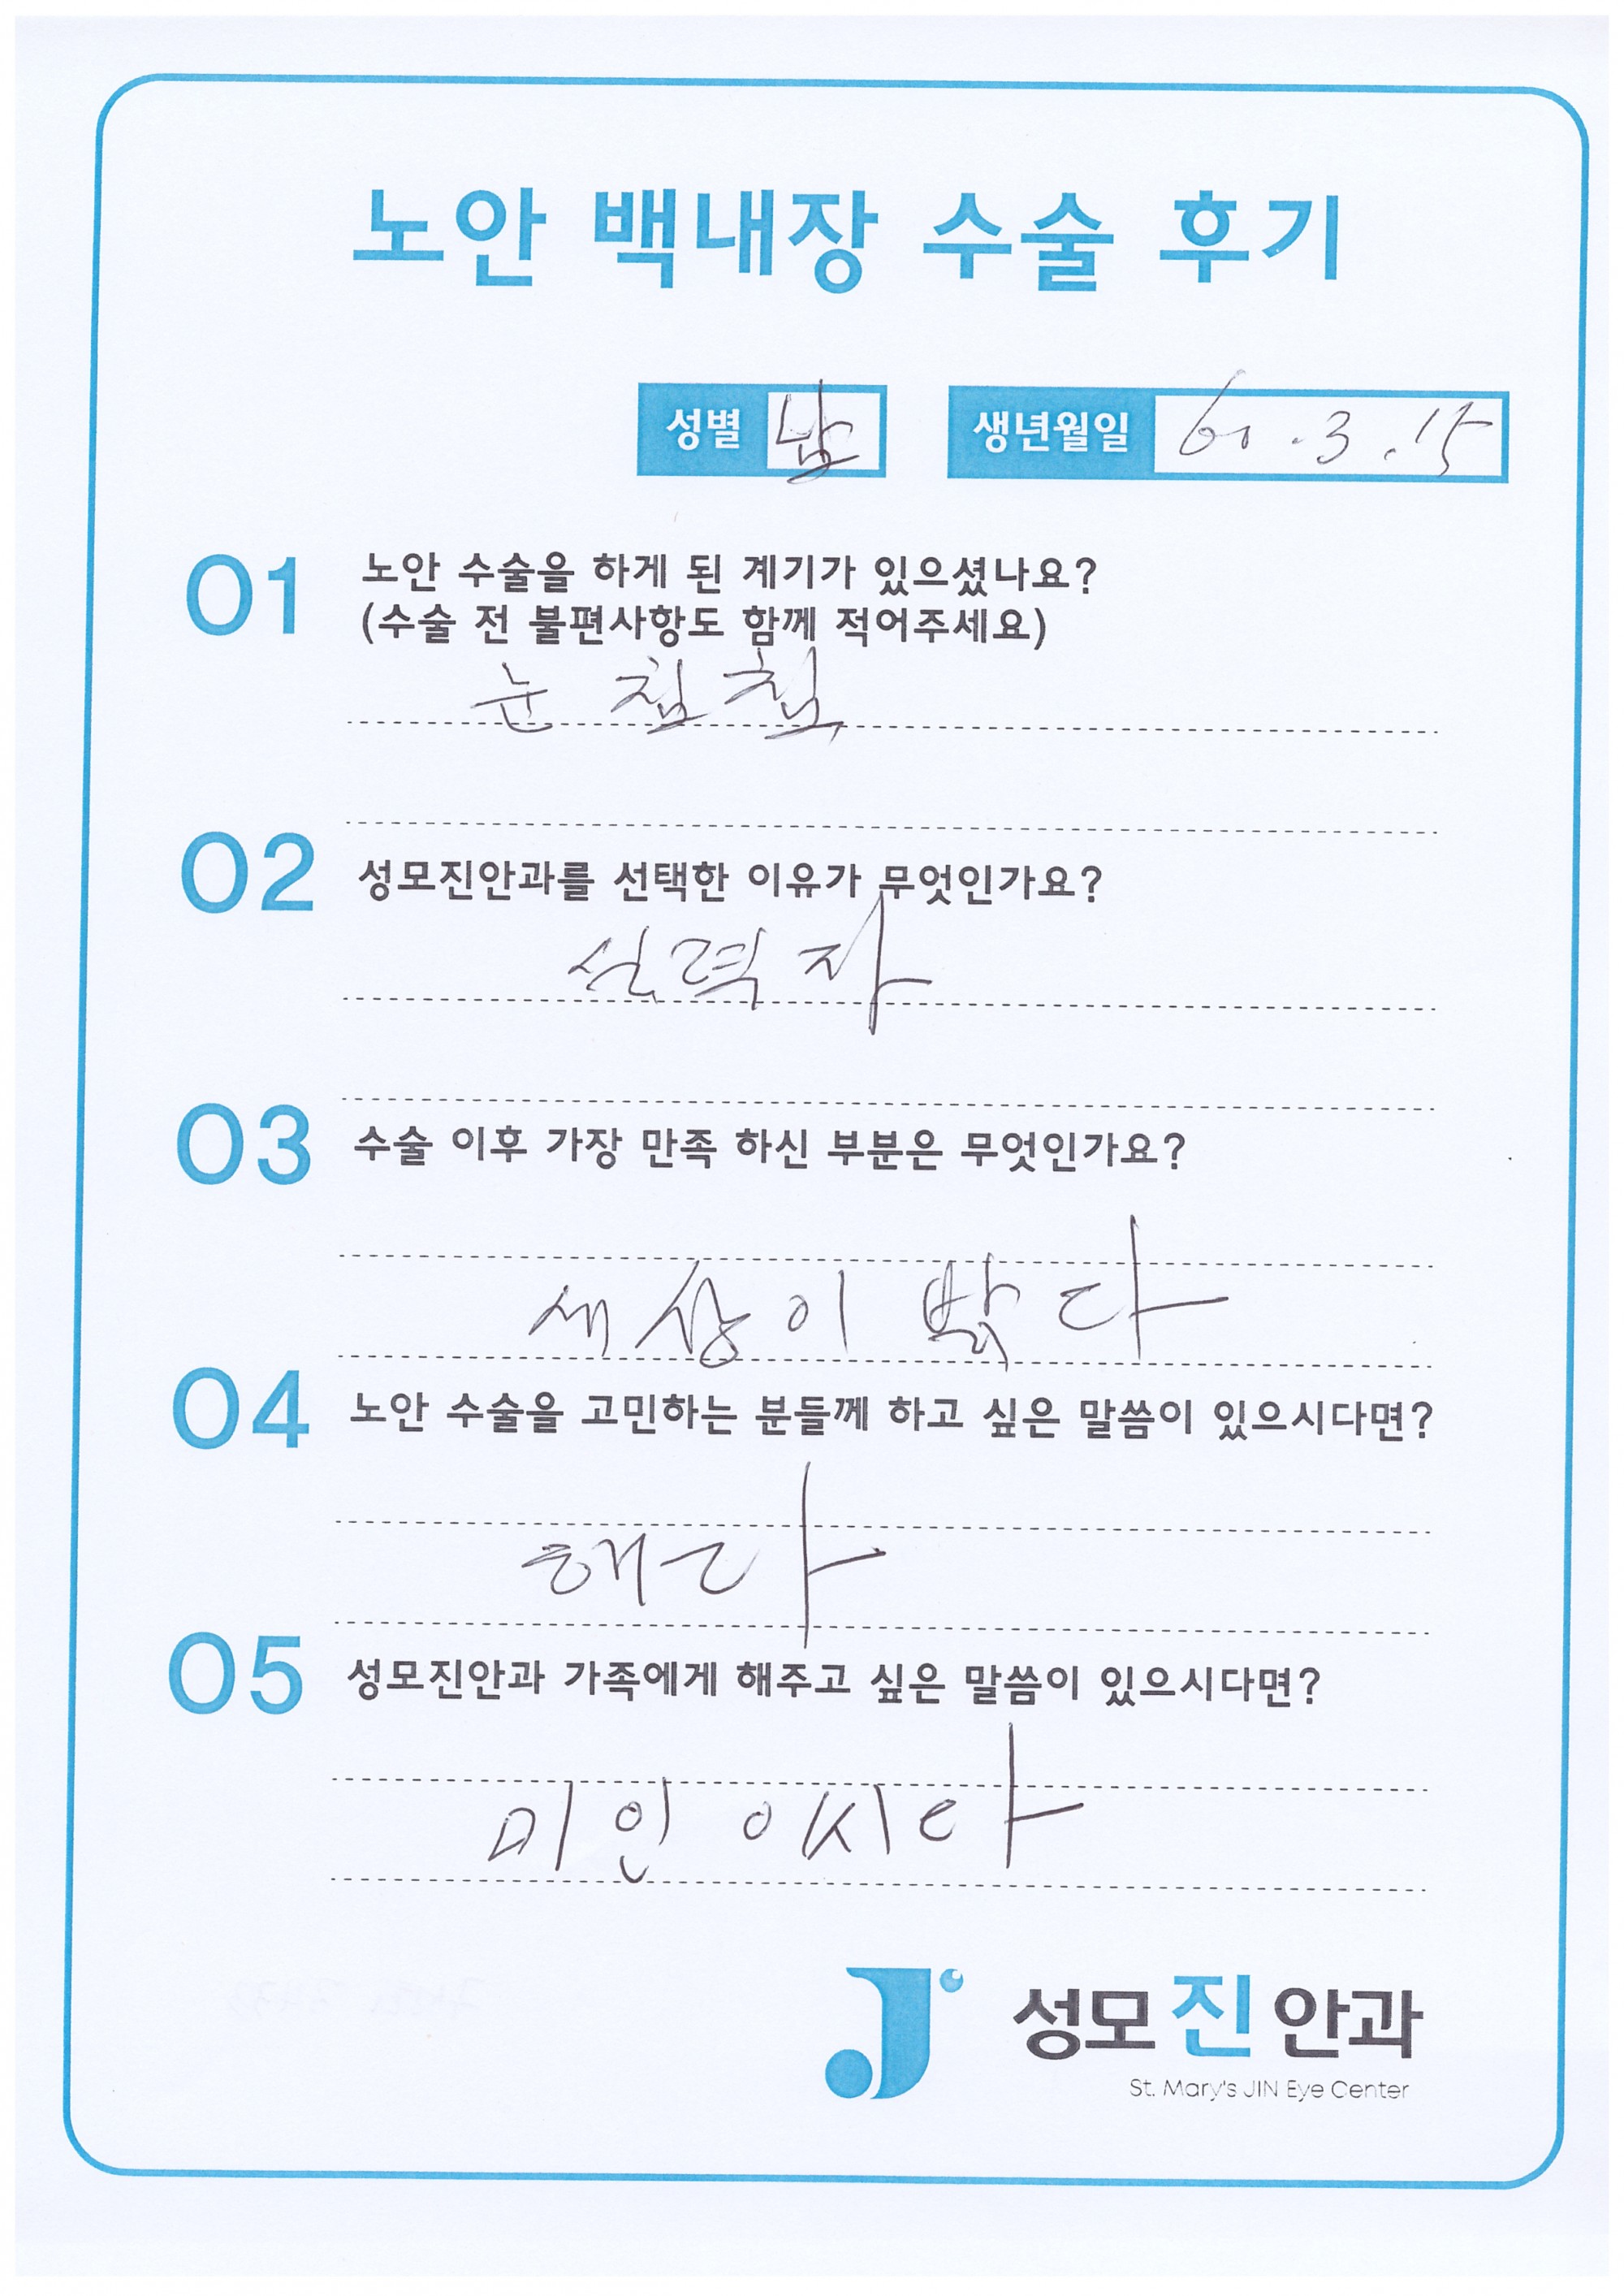 노안 백내장 수술 후기
성별 남 생년월일 60.3.15
01 노안 수술을 하게 된 계기가 있으셨나요?
(수술 전 불편사항도 함께 적어주세요)
눈 침침
02 성모진안과를 선택한 이유가 무엇인가요?
실력자
03 수술 이후 가장 만족 하신 부분은 무엇인가요?
세상이 밝다
04 노안 수술을 고민하는 분들께 하고 싶은 말씀이 있으시다면?
해라
05 성모진안과 가족에게 해주고 싶은 말씀이 있으시다면?
미인이시다
성모진안과
St. Mary's JIN Eye Center